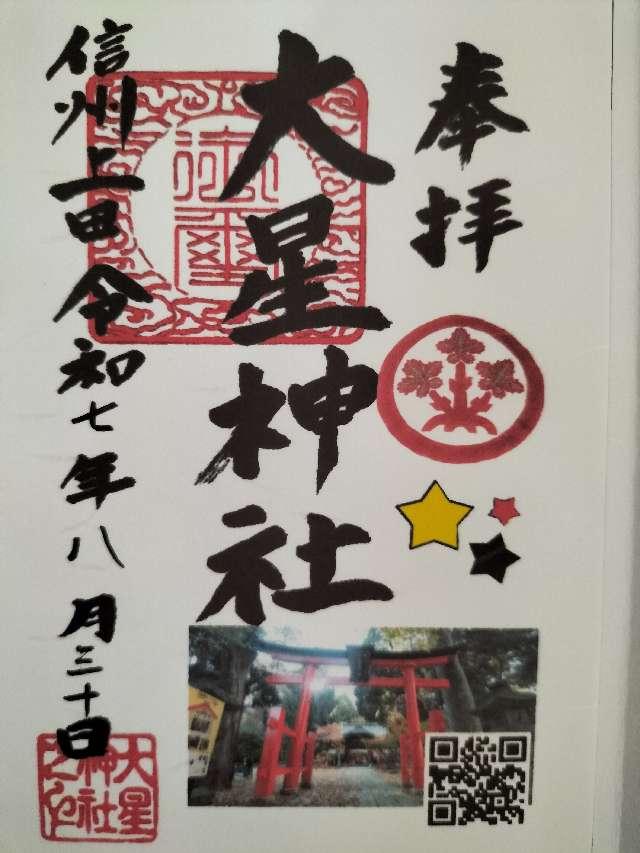 奉拝
大星神社
信州上田令和七年八月三十日
大星
神社